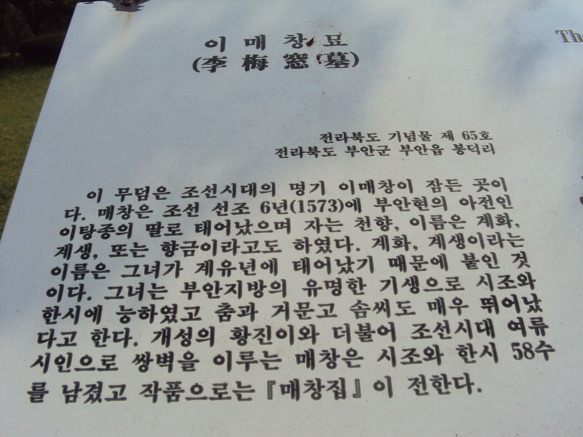 이 매 창 묘
(李 梅 窓 墓)
Th
전라북도 기념물 제 65호
전라북도 부안군 부안읍 봉덕리
이 무덤은 조선시대의 명기 이매창이 잠든 곳이
다. 매창은 조선 선조 6년(1573)에 부안현의 아전인
이탕종의 딸로 태어났으며 자는 천향, 이름은 계화,
계생, 또는 향금이라고도 하였다. 계화, 계생이라는
이름은 그녀가 계유년에 태어났기 때문에 붙인 것
이다. 그녀는 부안지방의 유명한 기생으로 시조와
한시에 능하였고 춤과 거문고 솜씨도 매우 뛰어났
다고 한다. 개성의 황진이와 더불어 조선시대 여류
시인으로 쌍벽을 이루는 매창은 시조와 한시 58수
를 남겼고 작품으로는 『매창집』이 전한다.